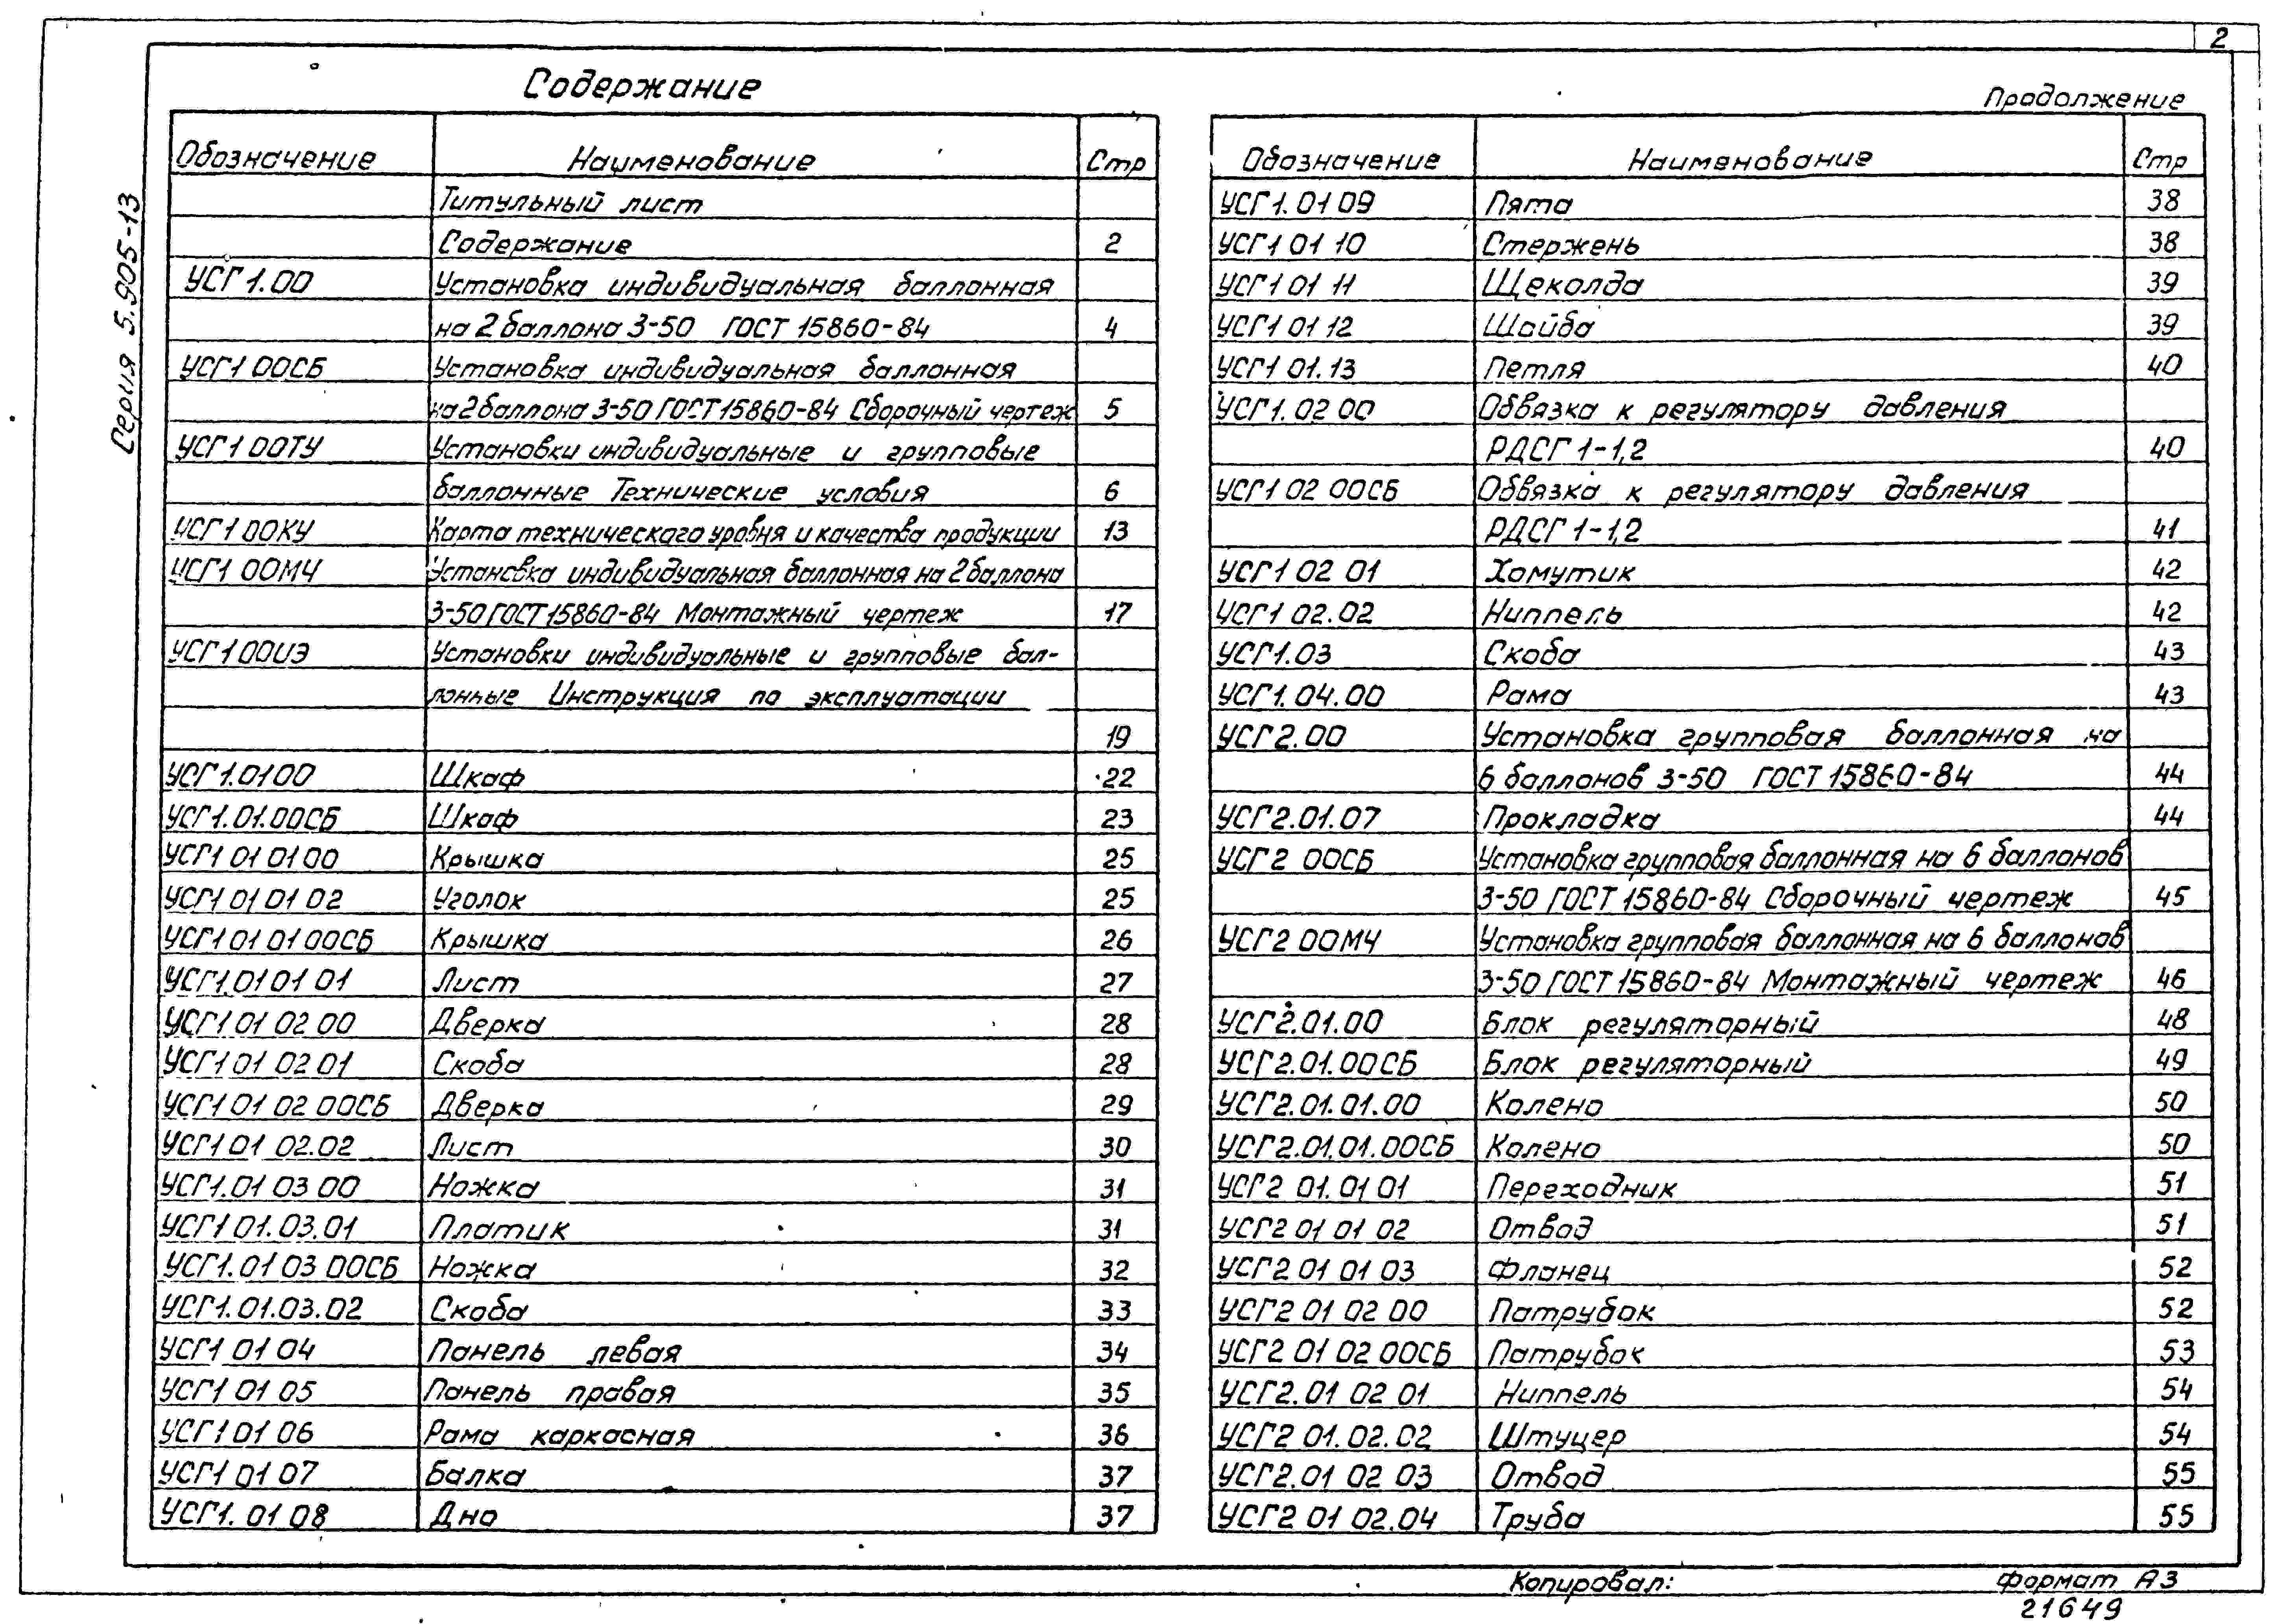 2
Содержание
Серия 5.905-13
Обозначение Наименование Стр
Титульный лист
Содержание 2
УСГ1.00 Установка индивидуальная баллонная
на 2 баллона 3-50 ГОСТ 15860-84 4
УСГ1 00СБ Установка индивидуальная баллонная
на 2 баллона 3-50 ГОСТ 15860-84 Сборочный чертеж 5
УСГ1 00ТУ Установки индивидуальные и групповые
баллонные Технические условия 6
УСГ1 00КУ Карта технического уровня и качества продукции 13
УСГ1 00МЧ Установка индивидуальная баллонная на 2 баллона
3-50 ГОСТ 15860-84 Монтажный чертеж 17
УСГ1 00ИЭ Установки индивидуальные и групповые бал-
лонные Инструкция по эксплуатации
19
УСГ1.01 00 Шкаф 22
УСГ1.01.00СБ Шкаф 23
УСГ1 01 01 00 Крышка 25
УСГ1 01 01 02 Уголок 25
УСГ1 01 01 00СБ Крышка 26
УСГ1.01 01 01 Лист 27
УСГ1 01 02 00 Дверка 28
УСГ1 01 02 01 Скоба 28
УСГ1 01 02 00СБ Дверка 29
УСГ1 01 02.02 Лист 30
УСГ1.01 03 00 Ножка 31
УСГ1 01.03.01 Платик 31
УСГ1.01 03 00СБ Ножка 32
УСГ1.01.03.02 Скоба 33
УСГ1 01 04 Панель левая 34
УСГ1 01 05 Панель правая 35
УСГ1 01 06 Рама каркасная 36
УСГ1 01 07 Балка 37
УСГ1. 01 08 Дно 37
Продолжение
Обозначение Наименование Стр
УСГ1. 01 09 Пята 38
УСГ1 01 10 Стержень 38
УСГ1 01 11 Щеколда 39
УСГ1 01 12 Шайба 39
УСГ1 01.13 Петля 40
УСГ1. 02 00 Обвязка к регулятору давления
РДСГ 1-1,2 40
УСГ1 02 00СБ Обвязка к регулятору давления
РДСГ 1-1,2 41
УСГ1 02 01 Хомутик 42
УСГ1 02.02 Ниппель 42
УСГ1.03 Скоба 43
УСГ1.04.00 Рама 43
УСГ2.00 Установка групповая баллонная на
6 баллонов 3-50 ГОСТ 15860-84 44
УСГ2.01.07 Прокладка 44
УСГ2 00СБ Установка групповая баллонная на 6 баллонов
3-50 ГОСТ 15860-84 Сборочный чертеж 45
УСГ2 00МЧ Установка групповая баллонная на 6 баллонов
3-50 ГОСТ 15860-84 Монтажный чертеж 46
УСГ2.01.00 Блок регуляторный 48
УСГ2.01.00СБ Блок регуляторный 49
УСГ2.01.01.00 Колено 50
УСГ2.01.01.00СБ Колено 50
УСГ2 01.01 01 Переходник 51
УСГ2 01 01 02 Отвод 51
УСГ2 01 01 03 Фланец 52
УСГ2 01 02 00 Патрубок 52
УСГ2 01 02 00СБ Патрубок 53
УСГ2.01 02 01 Ниппель 54
УСГ2 01.02.02 Штуцер 54
УСГ2.01 02 03 Отвод 55
УСГ2 01 02.04 Труба 55
Копировал: формат А3
21649